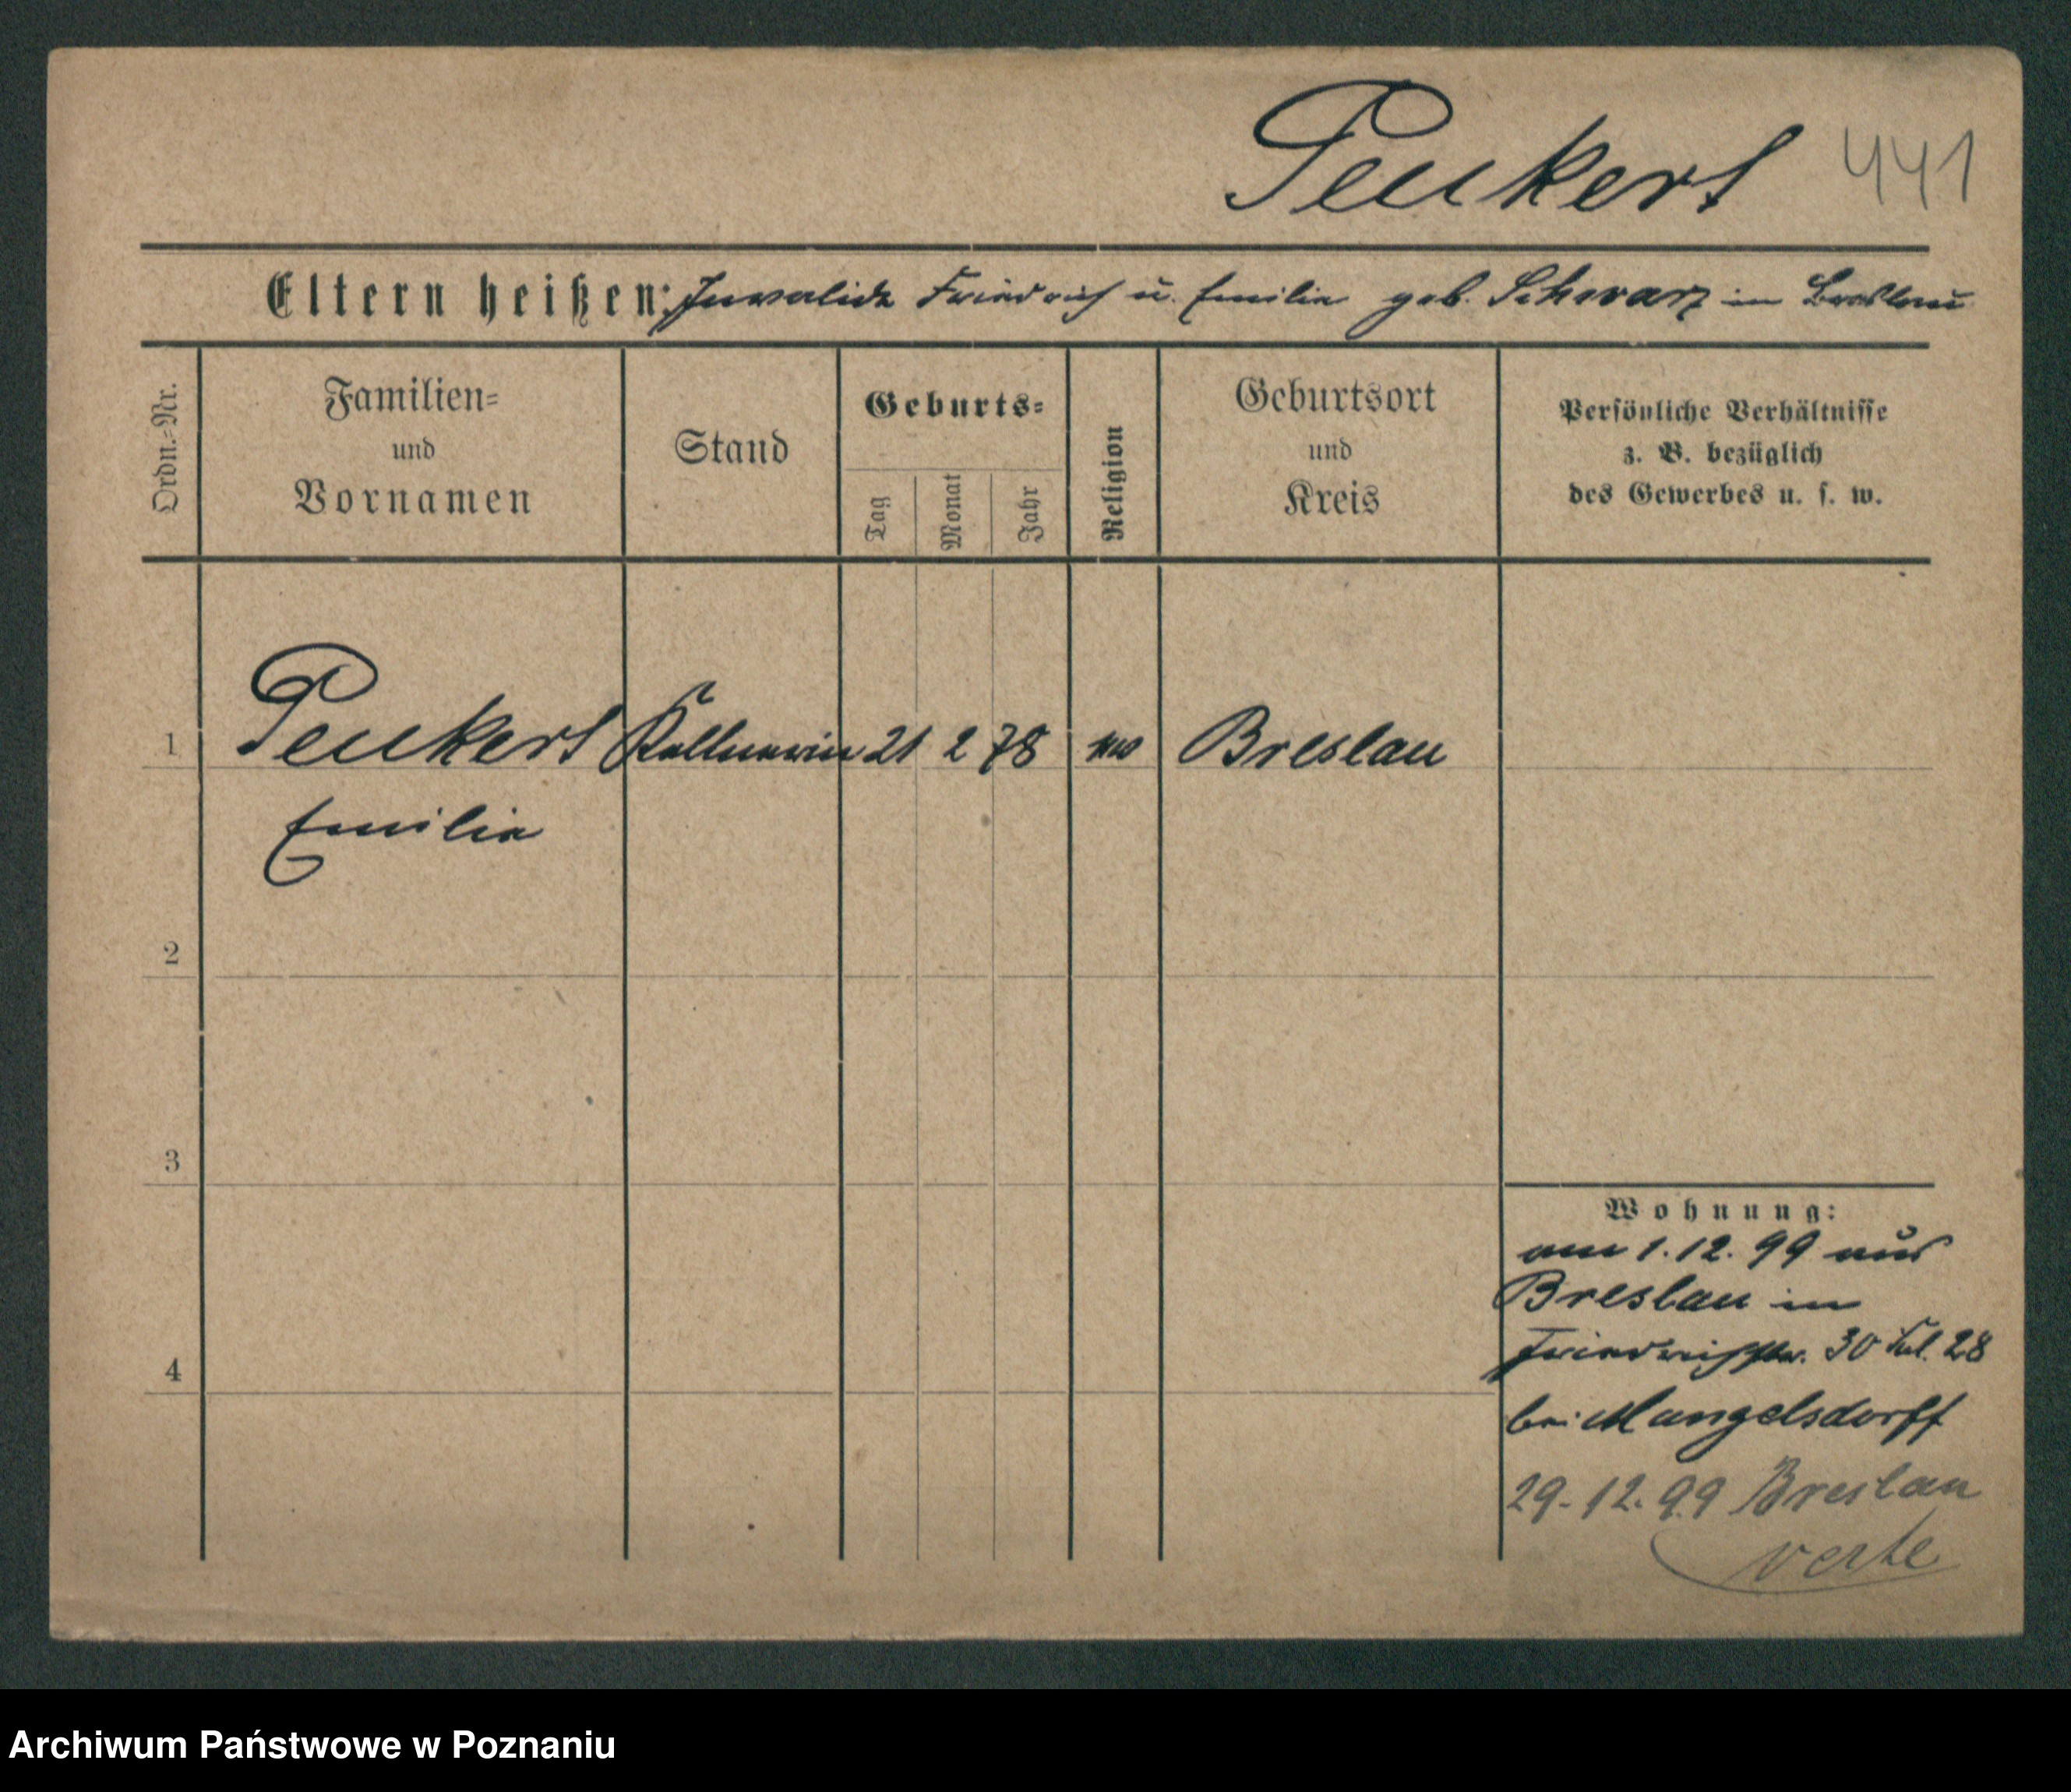 Peukert 441
Eltern heißen: Invalide Friedrich u. Emilie geb. Schwarz in Breslau
Ordn.=Nr.
Familien=
und
Vornamen
Stand
Geburts=
Tag
Monat
Jahr
Religion
Geburtsort
und
Kreis
Persönliche Verhältnisse
z. B. bezüglich
des Gewerbes u. s. w.
1 Peukert Kellnerin 21 2 78 Breslau
Emilie
2
3
4
Wohnung:
am 1.12.99 aus
Breslau in
Friedrichstr. 30 28
bei Mangelsdorff
29.12.99 Breslau
verte
Archiwum Państwowe w Poznaniu